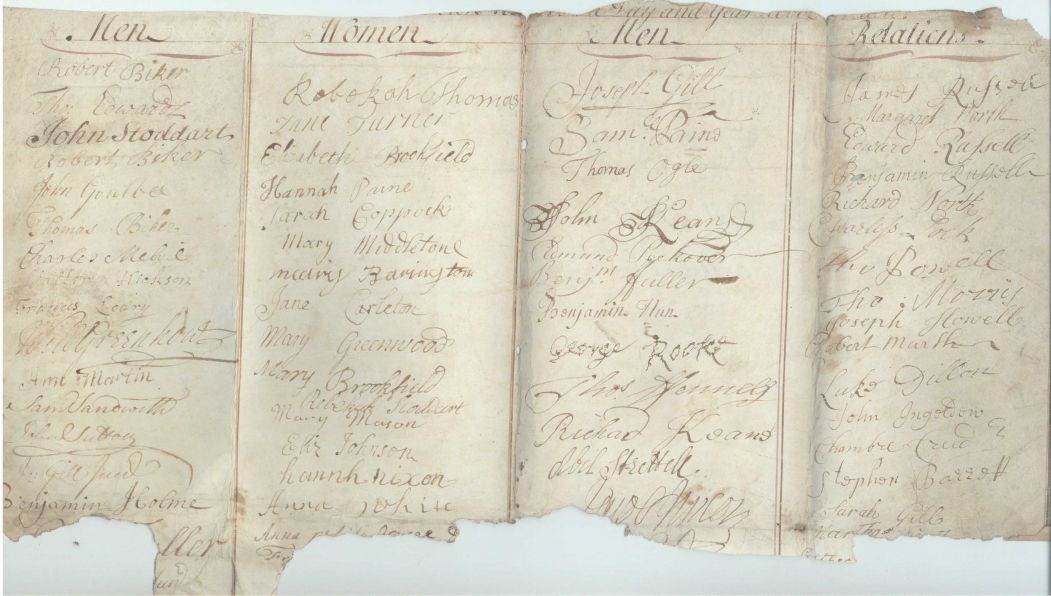 Day and Year
Men
Robert Biker
Tho Edwards
John Stoddart
Robert Biker
John Goulbee
Thomas Biker
Charles
Hickson
Frances Leary
Will Greenhow
Ann Martin
Sam Sandwith
John Sutton
Gill Jund
Benjamin Holme
ller
Women
Rebekah Thomas
Jane Turner
Elizabeth Brookfield
Hannah Paine
Sarah Coppock
Mary Middleton
Barington
Jane Carleton
Mary Greenwood
Mary Brookfield
Stoddart
Mary Mason
Eliz Johnson
hannh nixon
Anna white
Anna
Men
Joseph Gill
Sam. Paine
Thomas Ogle
John Keand
Edmund Peckover
Benjm. Fuller
Benjamin Nun
George Rooke
Thos Hennelly
Richard Keand
Abel Strettell
Relations
James Russell
Margaret North
Edward Russell
Benjamin Russell
Richard North
Charles
Tho Powell
Tho Morris
Joseph Howell
Robert
Luke Dillon
John
Chambre
Stephen Barrett
Sarah Gill